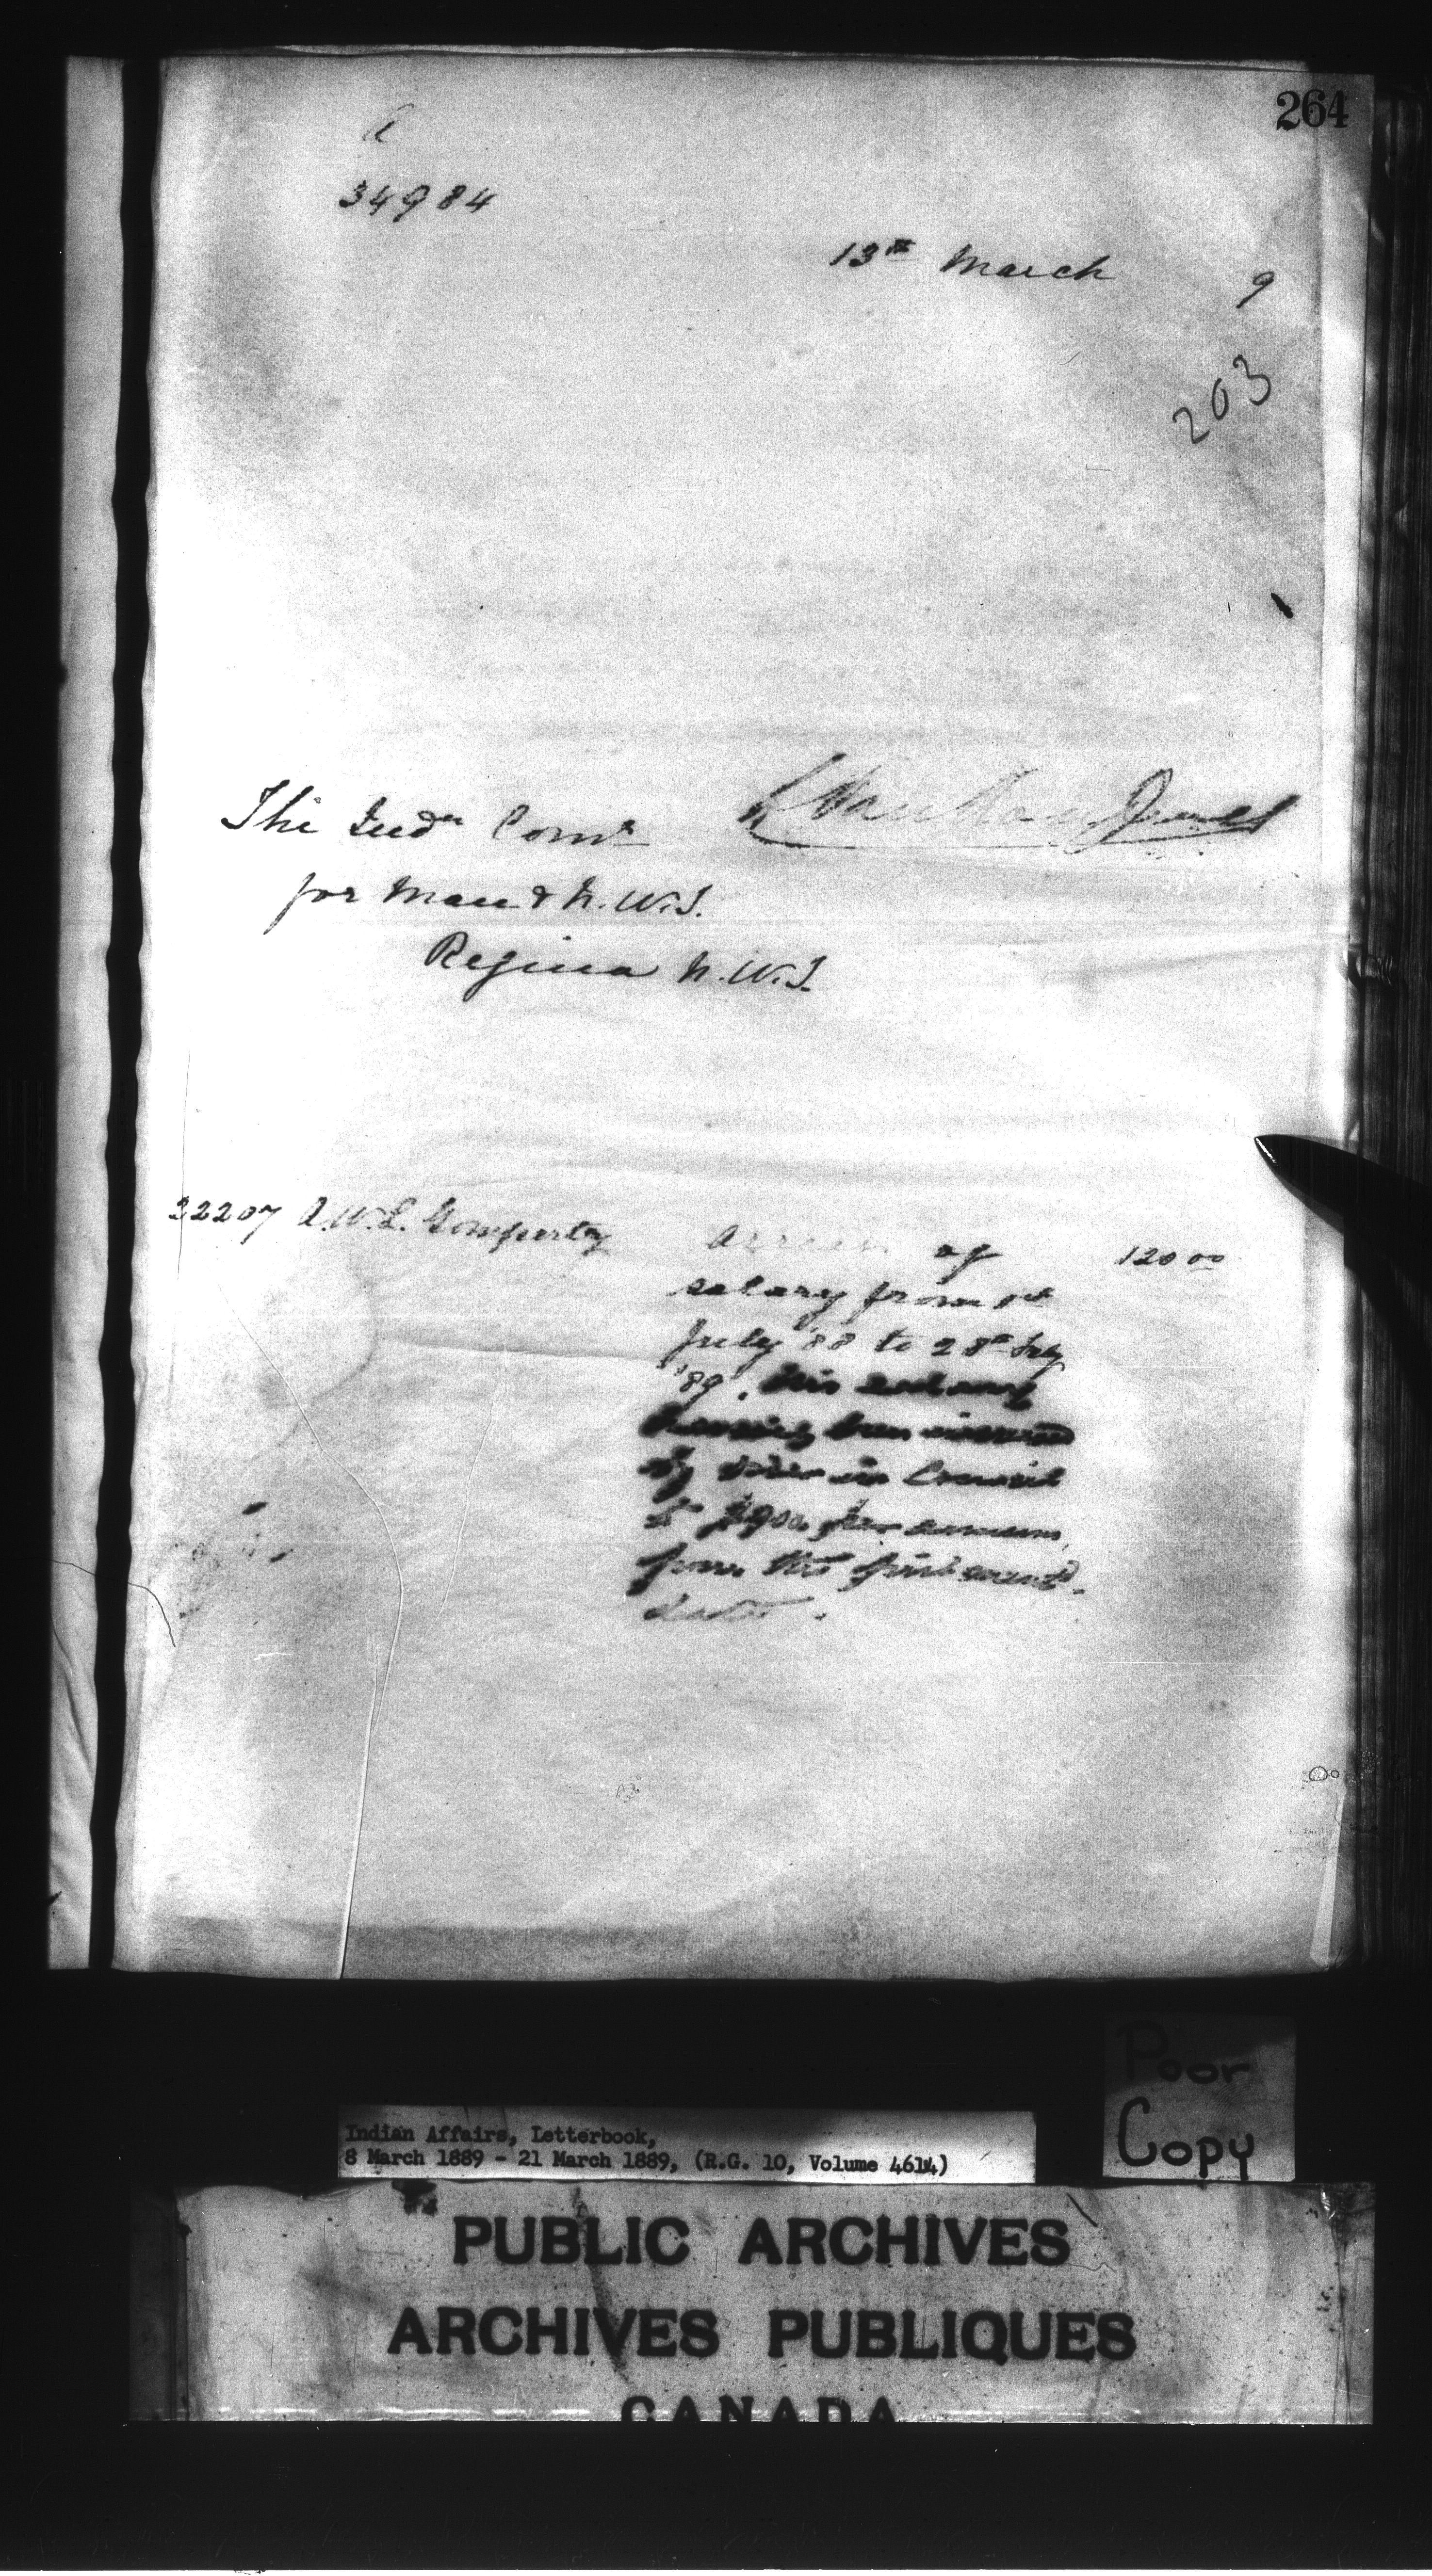 264
A
34984
13th March 9
203
L Van Koughnet
The Indn Comr
for Man & N.W.T.
Regina N.W.T.
22207 A.W.L. Gompertz Arrears of 120 00
salary from 1st
July '88 to 28th Feby
'89. His salary
having been increased
by Order in Council
to $900 per annum
from the first ment.
date.
Poor
Copy
Indian Affairs, Letterbook,
8 March 1889 - 21 March 1889, (R.G. 10, Volume 4614)
PUBLIC ARCHIVES
ARCHIVES PUBLIQUES
CANADA